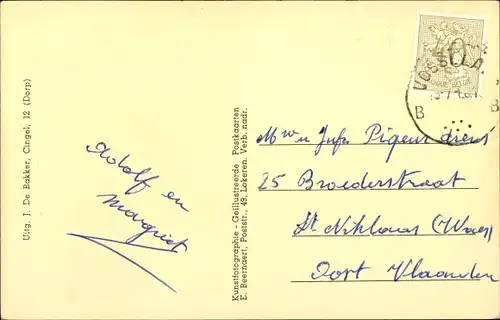 Uitg. J. De Bakker, Cingel, 12 (Dorp)
Adolf en
Margriet
Kunstfotographie - Geïllustreerde Postkaarten
E. Beernaert, Poststr., 49, Lokeren. Verb. nadr.
Mw en Jufr. Pigeur
25 Broederstraat
St Niklaas (Waes)
Oost Vlaanderen
40c
B
B